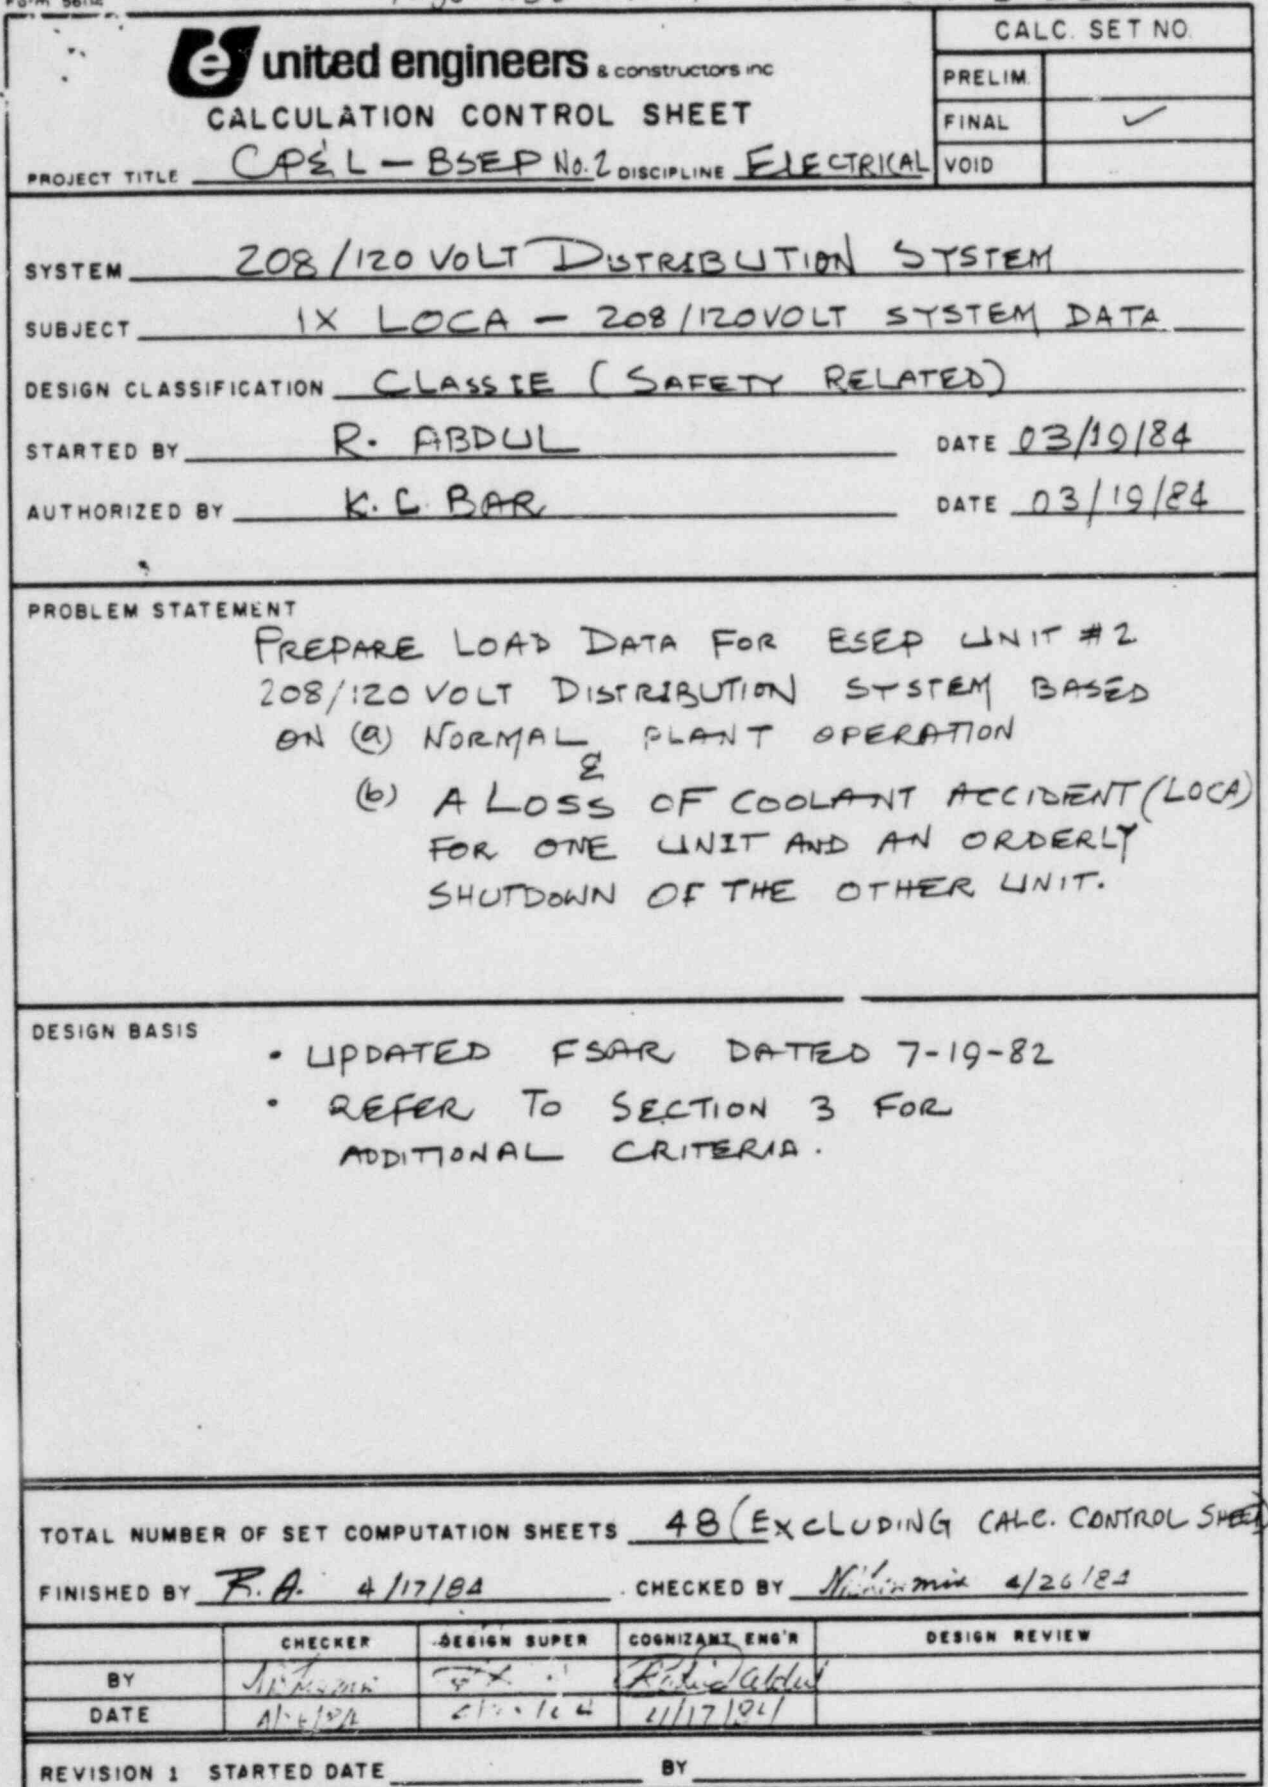 CALC. SET NO.
united engineers & constructors inc
PRELIM.
CALCULATION CONTROL SHEET
FINAL ✓
PROJECT TITLE CP&L - BSEP No.2 DISCIPLINE ELECTRICAL
VOID
SYSTEM 208/120 VOLT DISTRIBUTION SYSTEM
SUBJECT 1X LOCA - 208/120 VOLT SYSTEM DATA
DESIGN CLASSIFICATION CLASS IE (SAFETY RELATED)
STARTED BY R. ABDUL DATE 03/19/84
AUTHORIZED BY K. C. BAR DATE 03/19/84
PROBLEM STATEMENT
PREPARE LOAD DATA FOR BSEP UNIT #2
208/120 VOLT DISTRIBUTION SYSTEM BASED
ON (a) NORMAL PLANT OPERATION
&
(b) A LOSS OF COOLANT ACCIDENT (LOCA)
FOR ONE UNIT AND AN ORDERLY
SHUTDOWN OF THE OTHER UNIT.
DESIGN BASIS
• UPDATED FSAR DATED 7-19-82
• REFER TO SECTION 3 FOR
ADDITIONAL CRITERIA.
TOTAL NUMBER OF SET COMPUTATION SHEETS 48 (EXCLUDING CALC. CONTROL SHEET)
FINISHED BY R.A. 4/17/84 CHECKED BY 4/26/84
CHECKER DESIGN SUPER COGNIZANT ENG'R DESIGN REVIEW
BY Abdul
DATE 4/17/84
REVISION 1 STARTED DATE BY